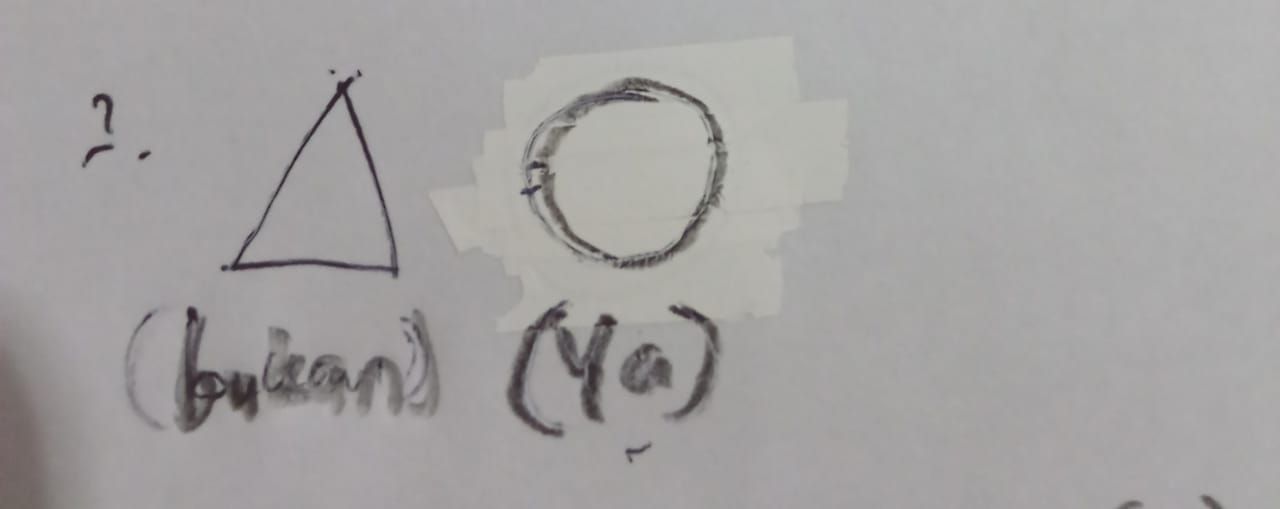 ?.
(bukan) (Ya)